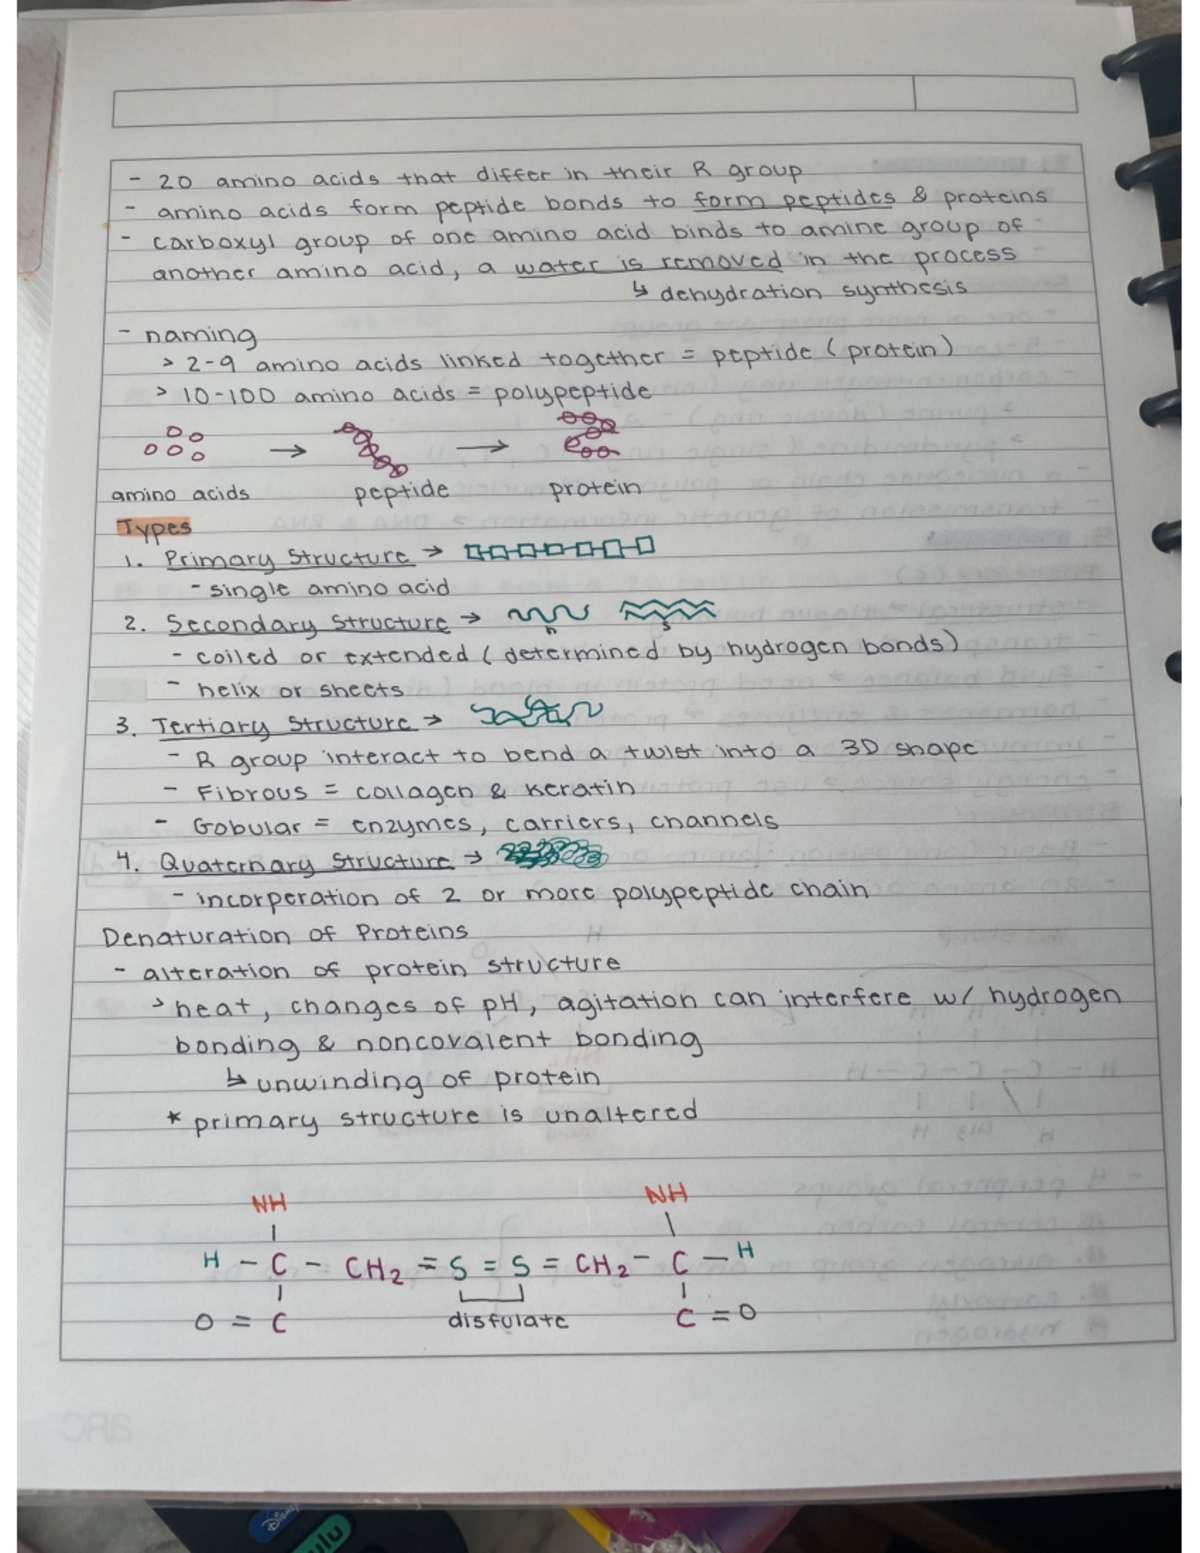 - 20 amino acids that differ in their R group
- amino acids form peptide bonds to form peptides & proteins
- carboxyl group of one amino acid binds to amine group of
another amino acid, a water is removed in the process
↳ dehydration synthesis
- naming
> 2-9 amino acids linked together = peptide (protein)
> 10-100 amino acids = polypeptide
→ →
amino acids peptide protein
Types
1. Primary Structure →
- single amino acid
2. Secondary Structure →
h s
- coiled or extended (determined by hydrogen bonds)
- helix or sheets
3. Tertiary Structure →
- R group interact to bend a twist into a 3D shape
- Fibrous = collagen & keratin
- Gobular = enzymes, carriers, channels
4. Quaternary Structure →
- incorperation of 2 or more polypeptide chain
Denaturation of Proteins
- alteration of protein structure
> heat, changes of pH, agitation can interfere w/ hydrogen
bonding & noncovalent bonding
↳ unwinding of protein
* primary structure is unaltered
NH NH
H - C - CH2 = S = S = CH2 - C - H
O = C disfulate C = O
arc
Disney
ulu